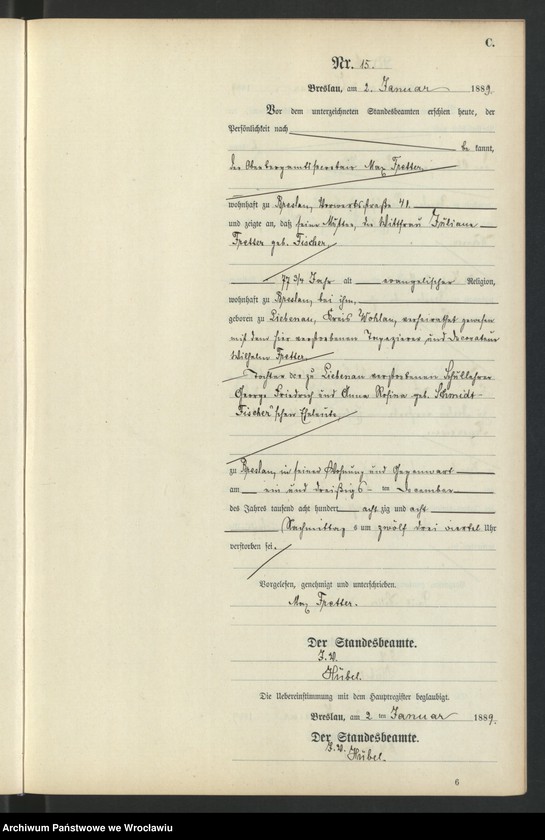 C.
Nr. 15.
Breslau, am 2. Januar 1889.
Vor dem unterzeichneten Standesbeamten erschien heute, der
Persönlichkeit nach
be kannt,
der Oberbergamtssecretair Max Tretter.
wohnhaft zu Breslau, Vorwerksstraße 41.
und zeigte an, daß seine Mutter, die Wittfrau Juliane
Tretter geb. Fischer,
77 3/4 Jahr alt evangelischer Religion,
wohnhaft zu Breslau, bei ihm,
geboren zu Liebenau, Kreis Wohlau, verheirathet gewesen
mit dem hier verstorbenen Tapezierer und Decorateur
Wilhelm Tretter
Tochter der zu Liebenau verstorbenen Schullehrer
George Friedrich und Anna Rosina geb. Schmidt-
Fischer'schen Eheleute,
zu Breslau, in seiner Wohnung und Gegenwart
am ein und dreißigs- ten December
des Jahres tausend acht hundert acht zig und acht
Nachmittag s um zwölf drei viertel Uhr
verstorben sei.
Vorgelesen, genehmigt und unterschrieben.
Max Tretter.
Der Standesbeamte.
I. V.
Hübel.
Die Uebereinstimmung mit dem Hauptregister beglaubigt.
Breslau, am 2 ten Januar 1889.
Der Standesbeamte.
I. V. Hübel.
6
Archiwum Państwowe we Wrocławiu